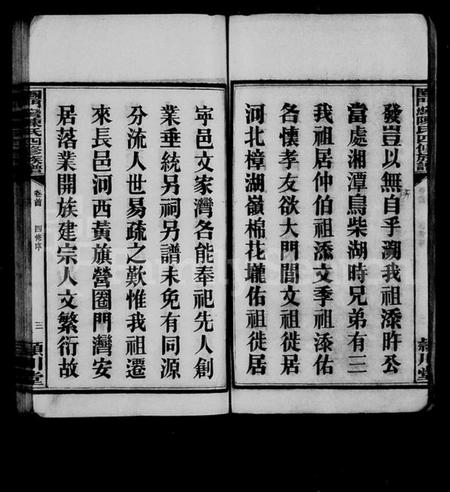 發豈以無自乎溯我祖添許公
當處湘潭烏柴湖時兄弟有三
我祖居仲伯祖添文季祖添佑
各懷孝友欲大門閭文祖徙居
河北樟湖嶺棉花壠佑祖徙居
寧邑文家灣各能奉祀先人創
業垂統另祠另譜未免有同源
分流人世易疏之歎惟我祖遷
來長邑河西黃旗營圈門灣安
居落業開族建宗人文繁衍故
陳氏四修族譜
卷首
四修序
三
潁川堂